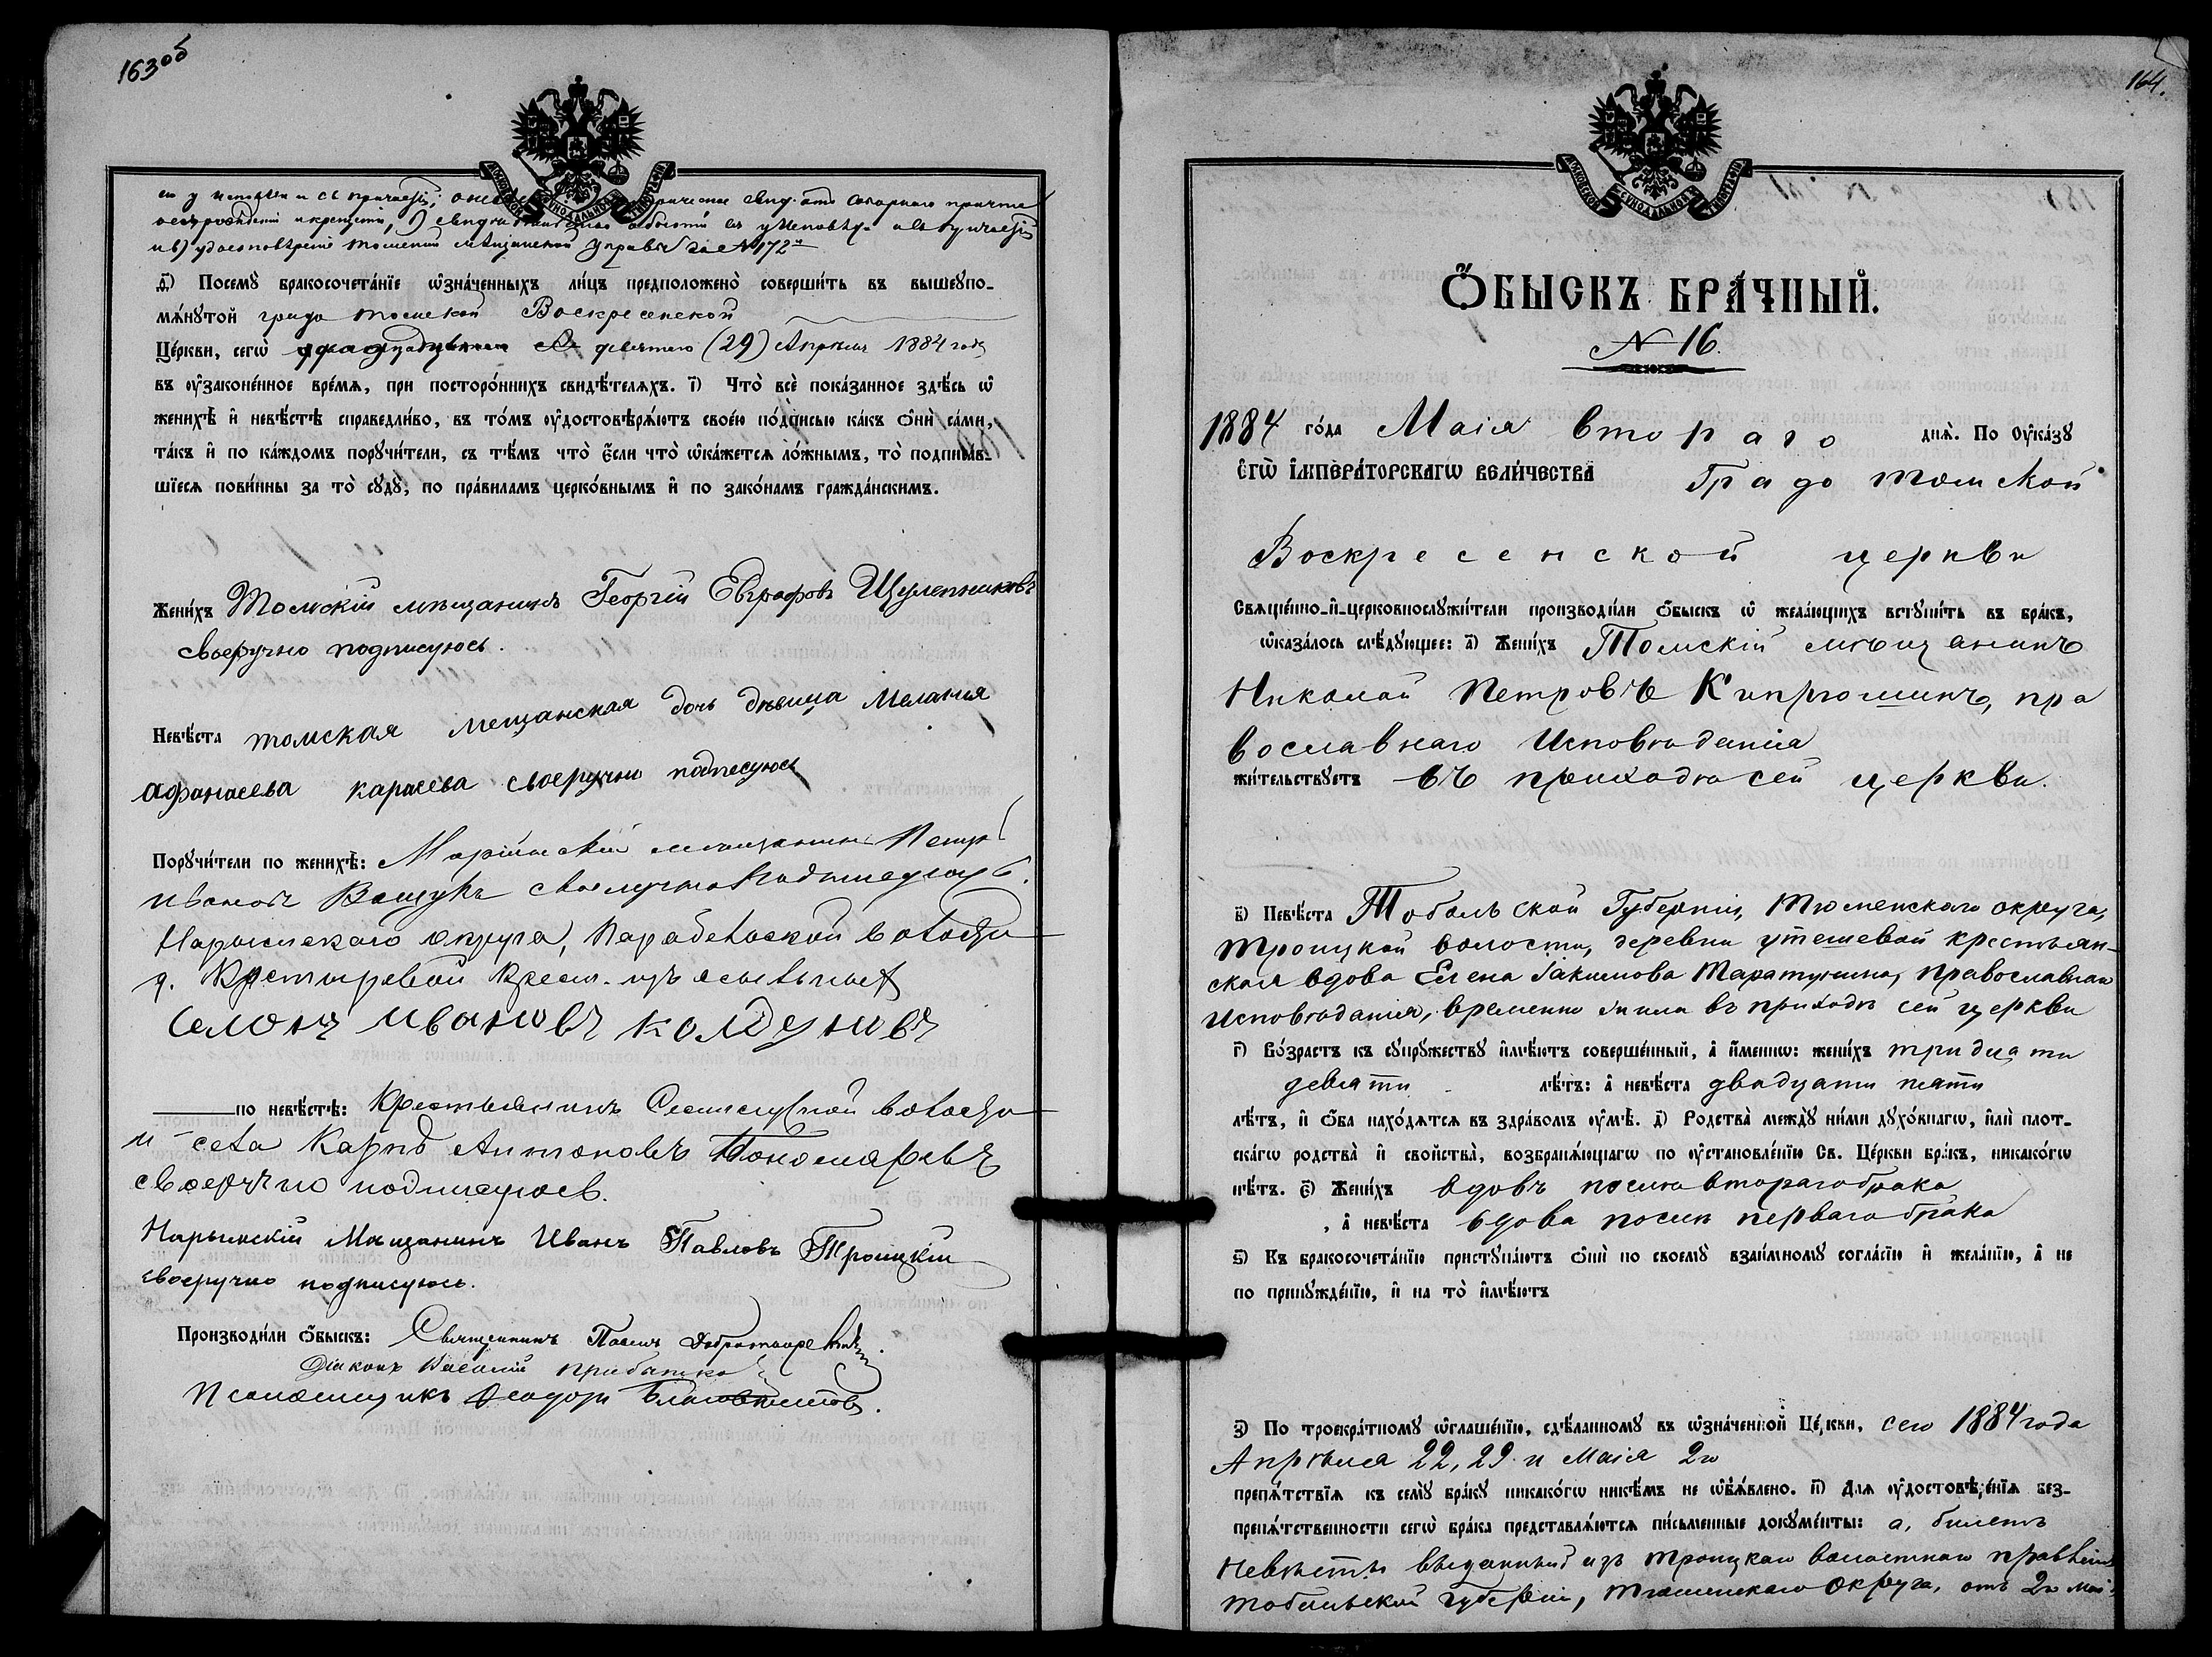 163об
МОСКОВСКОЙ СѴНОДАЛЬНОЙ ТИПОГРАФІИ
у исповѣди и св. причастія;
свид. отъ соборнаго причта
о рожденіи и крещеніи,
и в) удостовѣреніе томской мѣщанской управы за № 172
д҃) Посемꙋ̀ бракосочета́нїе ѡ҆зна́ченныхъ ли́цъ предположено̀ соверши́ть въ вышеꙋпо-
мѧ́нꙋтой градо томской Воскресенской
Це́ркви, сегѡ̀ девятаго (29) Апрѣля 1884 года
въ ᲂу҆законе́нное вре́мѧ, при посторо́ннихъ свидѣ́телѧхъ. і҃) Что̀ всѐ пока́занное здѣ́сь ѡ҆
женихѣ̀ и҆ невѣ́стѣ справедли́во, въ то́мъ ᲂу҆достовѣрѧ́ютъ свое́ю по́дписью ка́къ ѻ҆нѝ са́ми,
та́къ и҆ по ка́ждомъ порꙋчи́тели, съ тѣ́мъ что̀ є҆́сли что̀ ѡ҆ка́жетсѧ ло́жнымъ, то̀ подписа́в-
шїесѧ пови́нны за то̀ сꙋдꙋ̀, по пра́виламъ церко́внымъ и҆ по зако́намъ гражда́нскимъ.
Жени́хъ Томскій мѣщанинъ Георгій Евграфовъ Щулепниковъ
своеручно подписуюсь.
Невѣ́ста томская мещанская дочь дѣвица Мелания
Афанасева карасева своеручно подпесуюсь
Порꙋчи́тели по женихѣ̀: Маріинскій мѣщанинъ Петръ
Ивановъ Ващукъ своеручно подписуюсь.
Нарымскаго округа, Парабельской волости
д. Костыревой крест. изъ ссыльныхъ
Семонъ ивановъ колдуновъ
по невѣ́стѣ: Крестьянинъ Семилужной волости
и села Карпъ Антоновъ Пономаревъ
своеручно подписуюсь.
Нарымскій Мѣщанинъ Иванъ Павловъ Троицкій
своеручно подписуюсь.
Производи́ли ѻ҆́быскъ: Священникъ Павелъ Добротворскій
Діаконъ Василій Прибытковъ
Псаломщикъ Ѳеодоръ Благовѣстовъ.
164.
МОСКОВСКОЙ СѴНОДАЛЬНОЙ ТИПОГРАФІИ
Ѻ҆́БЫСКЪ БРА́ЧНЫЙ.
№ 16.
1884 го́да Маія втораго днѧ̀. По Оу҆ка́зꙋ
Є҆гѡ̀ І҆мпера́торскагѡ вели́чества Градо Томской
Воскресенской церкви
Свѧще́нно-и҆-церковнослꙋжи́тели производи́ли ѻ҆́быскъ ѡ҆ жела́ющихъ встꙋпи́ть въ бра́къ,
ѡ҆каза́лось слѣ́дꙋющее: а҃) Жени́хъ Томскій мѣщанинъ
Николай Петровъ Кипрюшинъ, пра
вославнаго Исповѣданія
жи́тельствꙋетъ въ приходѣ сей церкви.
в҃) Невѣ́ста Тобольской Губерніи, Тюменскаго округа,
Троицкой волости, деревни Утешевой крестьян-
ская вдова Елена Іакимова Таратунина, православнаго
Исповѣданія, временно жила въ приходѣ сей церкви
г҃) Во́зрастъ къ сꙋпрꙋ́жествꙋ и҆мѣ́ютъ соверше́нный, а҆ и҆́меннѡ: жени́хъ тридцати
девяти лѣ́тъ: а҆ невѣ́ста двадцати пяти
лѣ́тъ, и҆ ѻ҆́ба нахо́дѧтсѧ въ здра́вомъ ᲂу҆мѣ̀. д҃) Родства̀ междꙋ̀ ни́ми дꙋхо́внагѡ, и҆лѝ плот-
ска́гѡ родства̀ и҆ сво́йства̀, возбранѧ́ющагѡ по ᲂу҆становле́нїю Св. Це́ркви бра́къ, никако́гѡ
нѣ́тъ. є҃) Жени́хъ вдовъ послѣ втораго брака
, а҆ невѣ́ста вдова послѣ перваго брака
ѕ҃) Къ бракосочета́нїю пристꙋпа́ютъ ѻ҆нѝ по своемꙋ̀ взаи́мномꙋ согла́сїю и҆ жела́нїю, а҆ не
по принꙋжде́нїю, и҆ на то̀ и҆мѣ́ютъ
з҃) По троекра́тномꙋ ѡ҆глаше́нїю, сдѣ́ланномꙋ въ ѡ҆зна́ченной Це́ркви, сего 1884 года
Апрѣля 22, 29 и Маія 2го
препѧ́тствїѧ къ семꙋ̀ бра́кꙋ никако́гѡ никѣ́мъ не ѡ҆б̾ѧ́влено. и҃) Длѧ ᲂу҆достовѣре́нїѧ без-
препѧ́тственности сегѡ̀ бра́ка представлѧ́ютсѧ пи́сьменные докꙋме́нты: а, билетъ
Невѣсты выданный изъ Троицкаго волостнаго правленія
Тобольской губерніи, Тюменскаго Округа, отъ 2го Маія